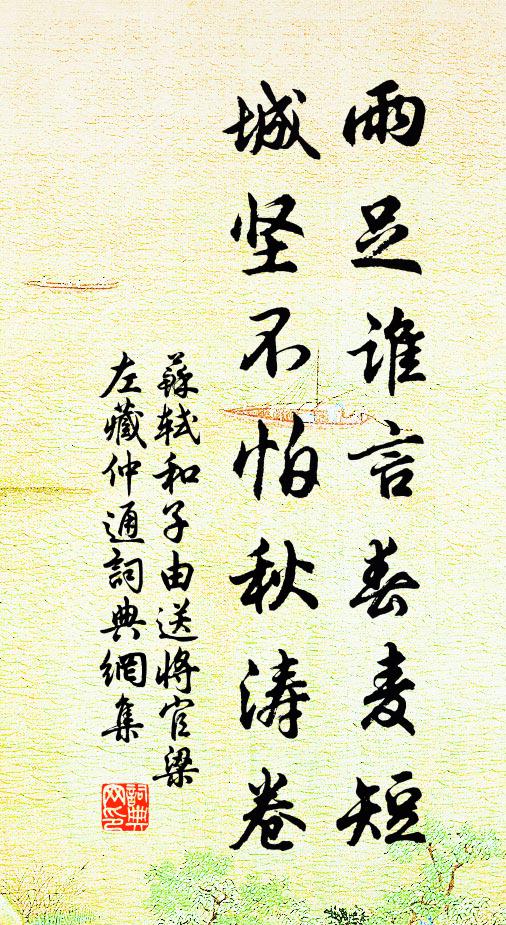 雨足谁言春麦短
城坚不怕秋涛卷
蘇轼和子由送将官梁
左藏仲通詞典網集
詞典网印